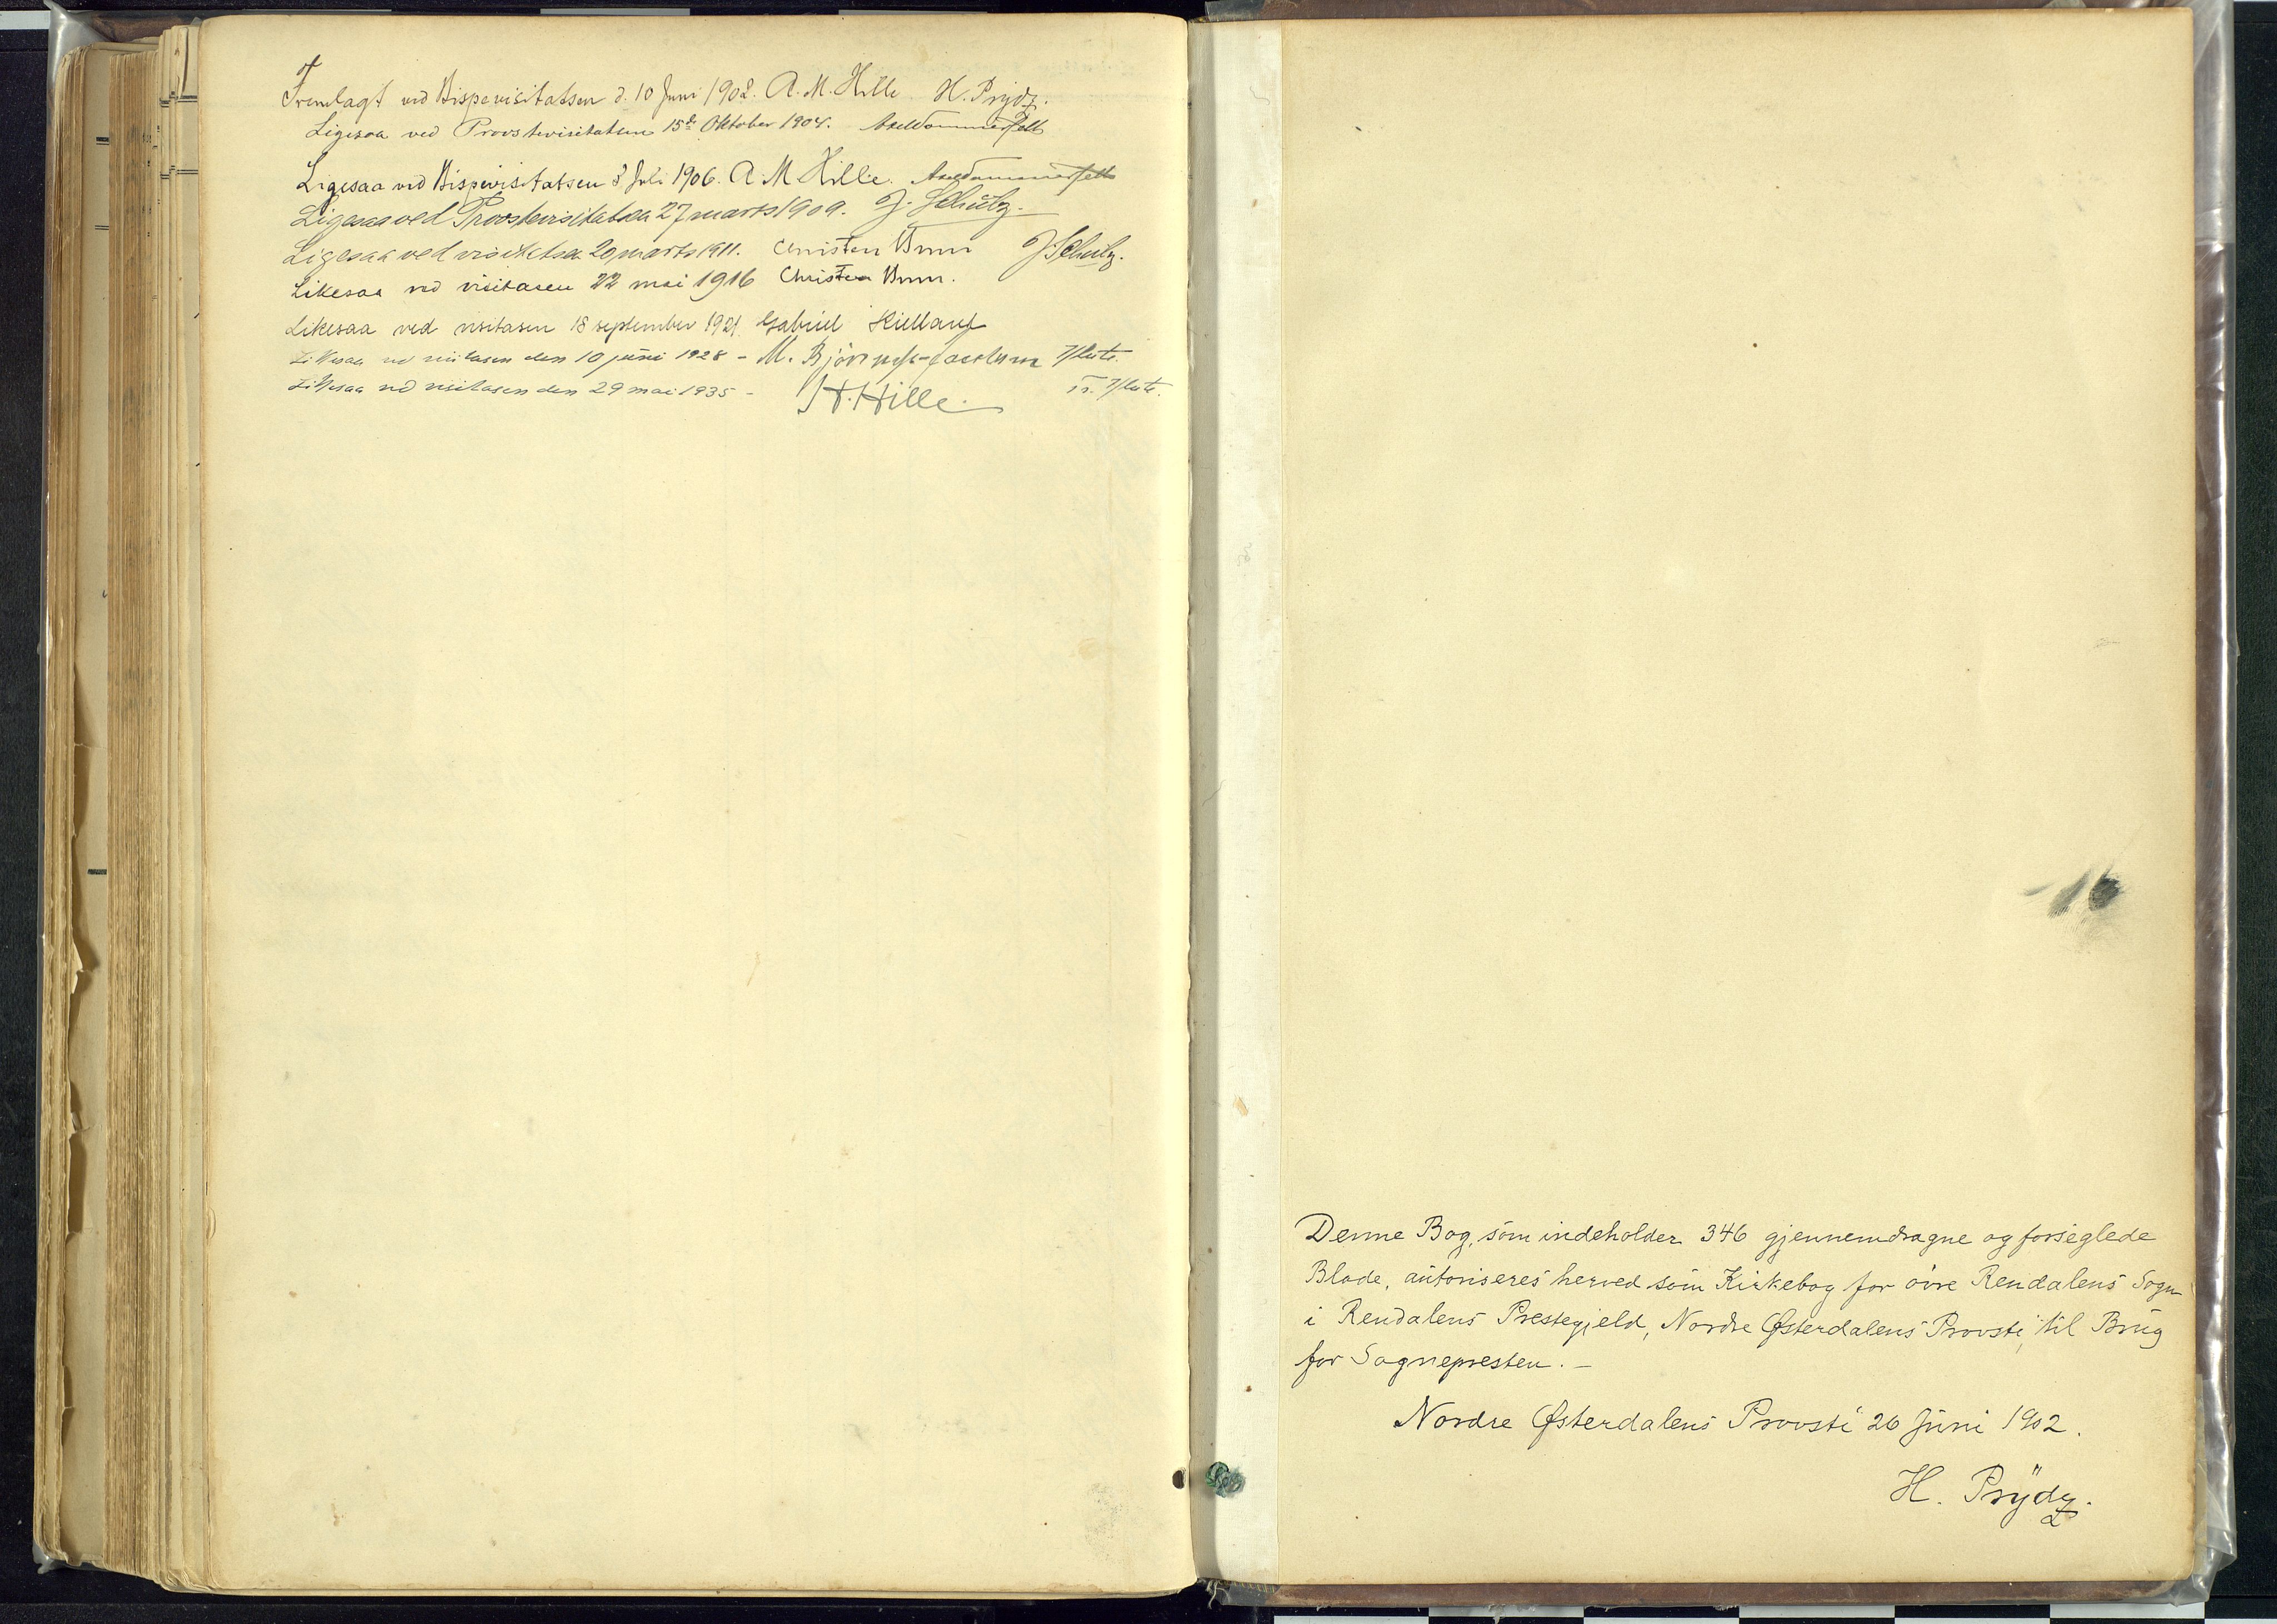 Fremlagt ved Bispevisitatsen d. 10 Juni 1902. A. M. Hille. H. Prÿdz.
Ligesaa ved Provstevisitatsen 15de Oktober 1904. Axel Sommerfelt
Ligesaa ved Bispevisitatsen 8 Juli 1906. A. M Hille. Axel Sommerfelt
Ligesaa ved Provstevisitatsen 27 marts 1909. J. Schübz.
Ligesaa ved visitatsen 20 marts 1911. Christen Brun J. Schübz.
Likesaa ved visitasen 22 mai 1916 Christen Brun.
Likesaa ved visitasen 18 september 1921. Gabriel Kielland
Likesaa ved visitasen den 10 juni 1928 - M. Bjönness-Jacobsen
Likesaa ved visitasen den 29 mai 1935 - H. Hille.
Denne Bog, som indeholder 346 gjennemdragne og forseglede
Blade, autoriseres herved som Kirkebog for övre Rendalens Sogn
i Rendalens Prestegjeld, Nordre Østerdalens Provsti, til Brug
for Sognepresten. -
Nordre Østerdalens Provsti 26 Juni 1902.
H. Prÿdz.